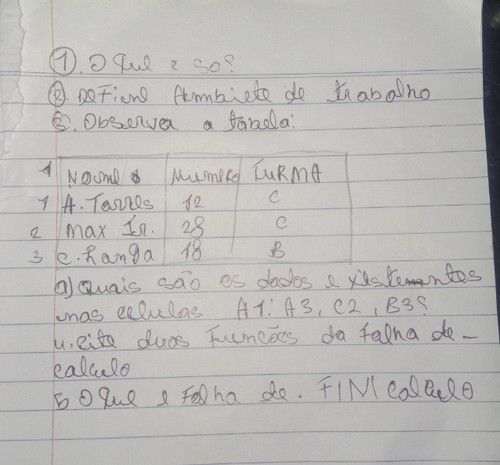 1. O que e so?
2. Define Ambiete de trabalho
3. Observa a tabela:
1 Nome Numero TURMA
1 A. Torres 12 C
2 Max Jr. 28 C
3 C. Langa 18 B
a) quais são os dados existentes
nas celulas A1:A3, C2, B3?
4. cita duas Funções da Falha de-
calculo
5 O que e Folha de. FIM calculo